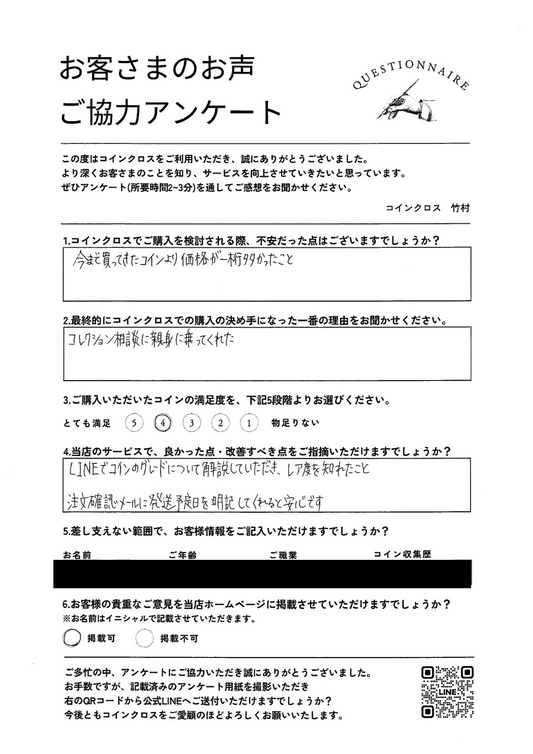 お客さまのお声
ご協力アンケート
QUESTIONNAIRE
この度はコインクロスをご利用いただき、誠にありがとうございました。
より深くお客さまのことを知り、サービスを向上させていきたいと思っています。
ぜひアンケート(所要時間2~3分)を通してご感想をお聞かせください。
コインクロス 竹村
1.コインクロスでご購入を検討される際、不安だった点はございますでしょうか?
今まで買ってきたコインより価格が一桁多かったこと
2.最終的にコインクロスでの購入の決め手になった一番の理由をお聞かせください。
コレクション相談に親身に乗ってくれた
3.ご購入いただいたコインの満足度を、下記5段階よりお選びください。
とても満足 5 4 3 2 1 物足りない
4.当店のサービスで、良かった点・改善すべき点をご指摘いただけますでしょうか?
LINEでコインのグレードについて解説していただき、レア度を知れたこと
注文確認メールに発送予定日を明記してくれると安心です
5.差し支えない範囲で、お客様情報をご記入いただけますでしょうか?
お名前 ご年齢 ご職業 コイン収集歴
6.お客様の貴重なご意見を当店ホームページに掲載させていただけますでしょうか?
※お名前はイニシャルで記載させていただきます。
掲載可 掲載不可
ご多忙の中、アンケートにご協力いただき誠にありがとうございました。
お手数ですが、記載済みのアンケート用紙を撮影いただき
右のQRコードから公式LINEへご送付いただけますでしょうか?
今後ともコインクロスをご愛顧のほどよろしくお願いいたします。
LINE